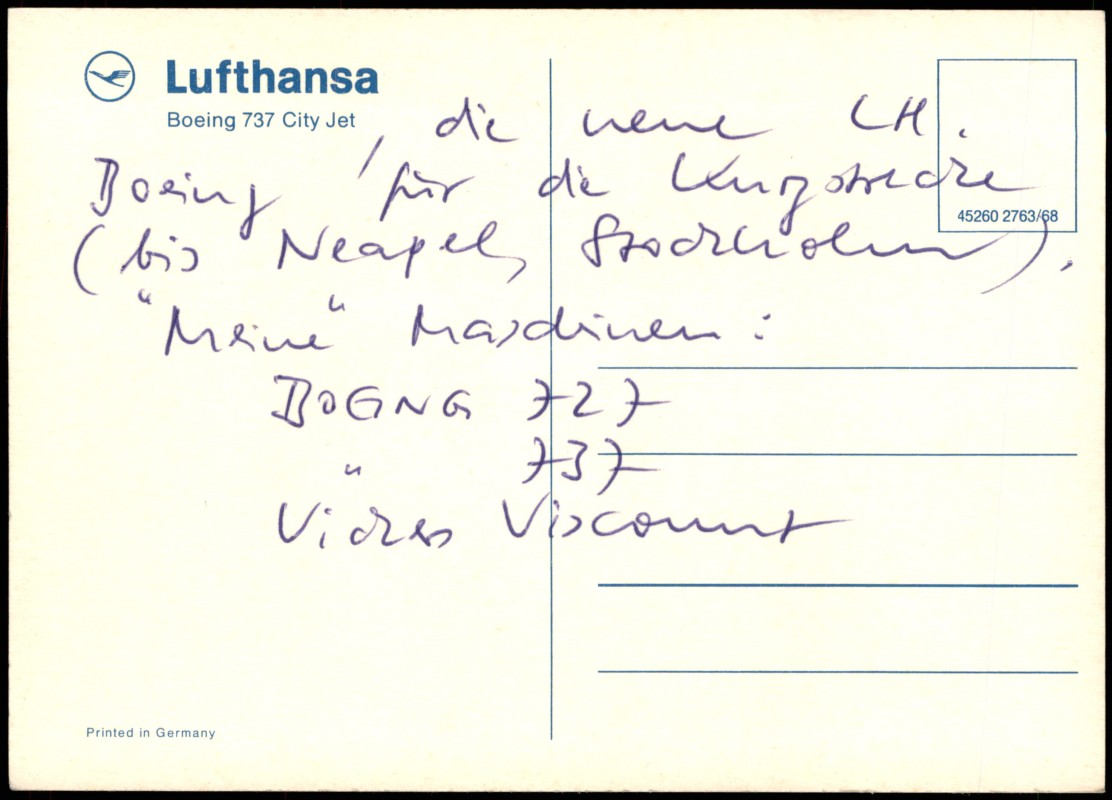 Lufthansa
Boeing 737 City Jet
, die neue LH.
Boeing für die Kurzstrecke
45260 2763/68
(bis Neapel, Stockholm).
"Meine" Maschinen:
BOEING 727
" 737
Vickers Viscount
Printed in Germany